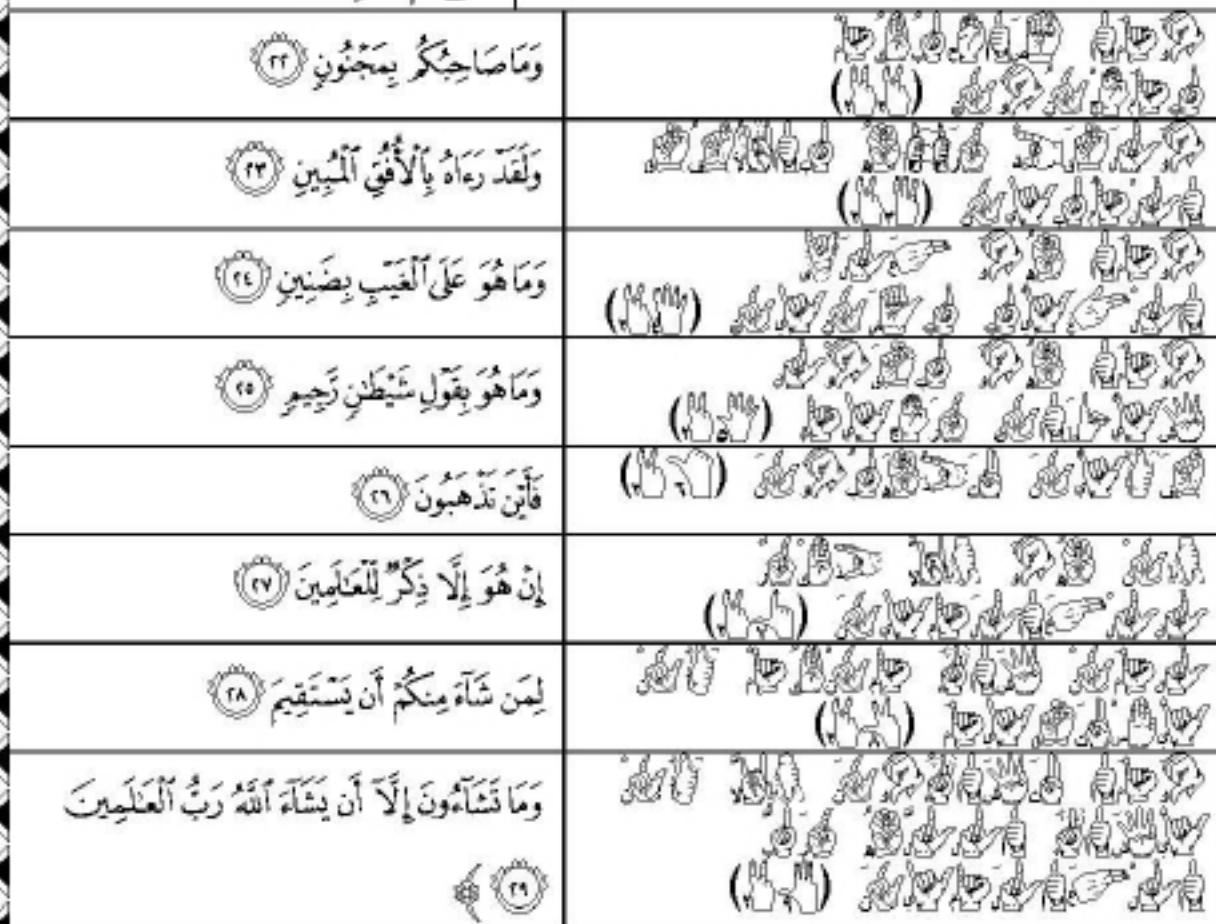 وَمَا صَاحِبُكُم بِمَجْنُونٍ ٢٢
وَلَقَدْ رَءَاهُ بِٱلْأُفُقِ ٱلْمُبِينِ ٢٣
وَمَا هُوَ عَلَى ٱلْغَيْبِ بِضَنِينٍ ٢٤
وَمَا هُوَ بِقَوْلِ شَيْطَٰنٍ رَّجِيمٍ ٢٥
فَأَيْنَ تَذْهَبُونَ ٢٦
إِنْ هُوَ إِلَّا ذِكْرٌ لِّلْعَٰلَمِينَ ٢٧
لِمَن شَآءَ مِنكُمْ أَن يَسْتَقِيمَ ٢٨
وَمَا تَشَآءُونَ إِلَّآ أَن يَشَآءَ ٱللَّهُ رَبُّ ٱلْعَٰلَمِينَ
٢٩